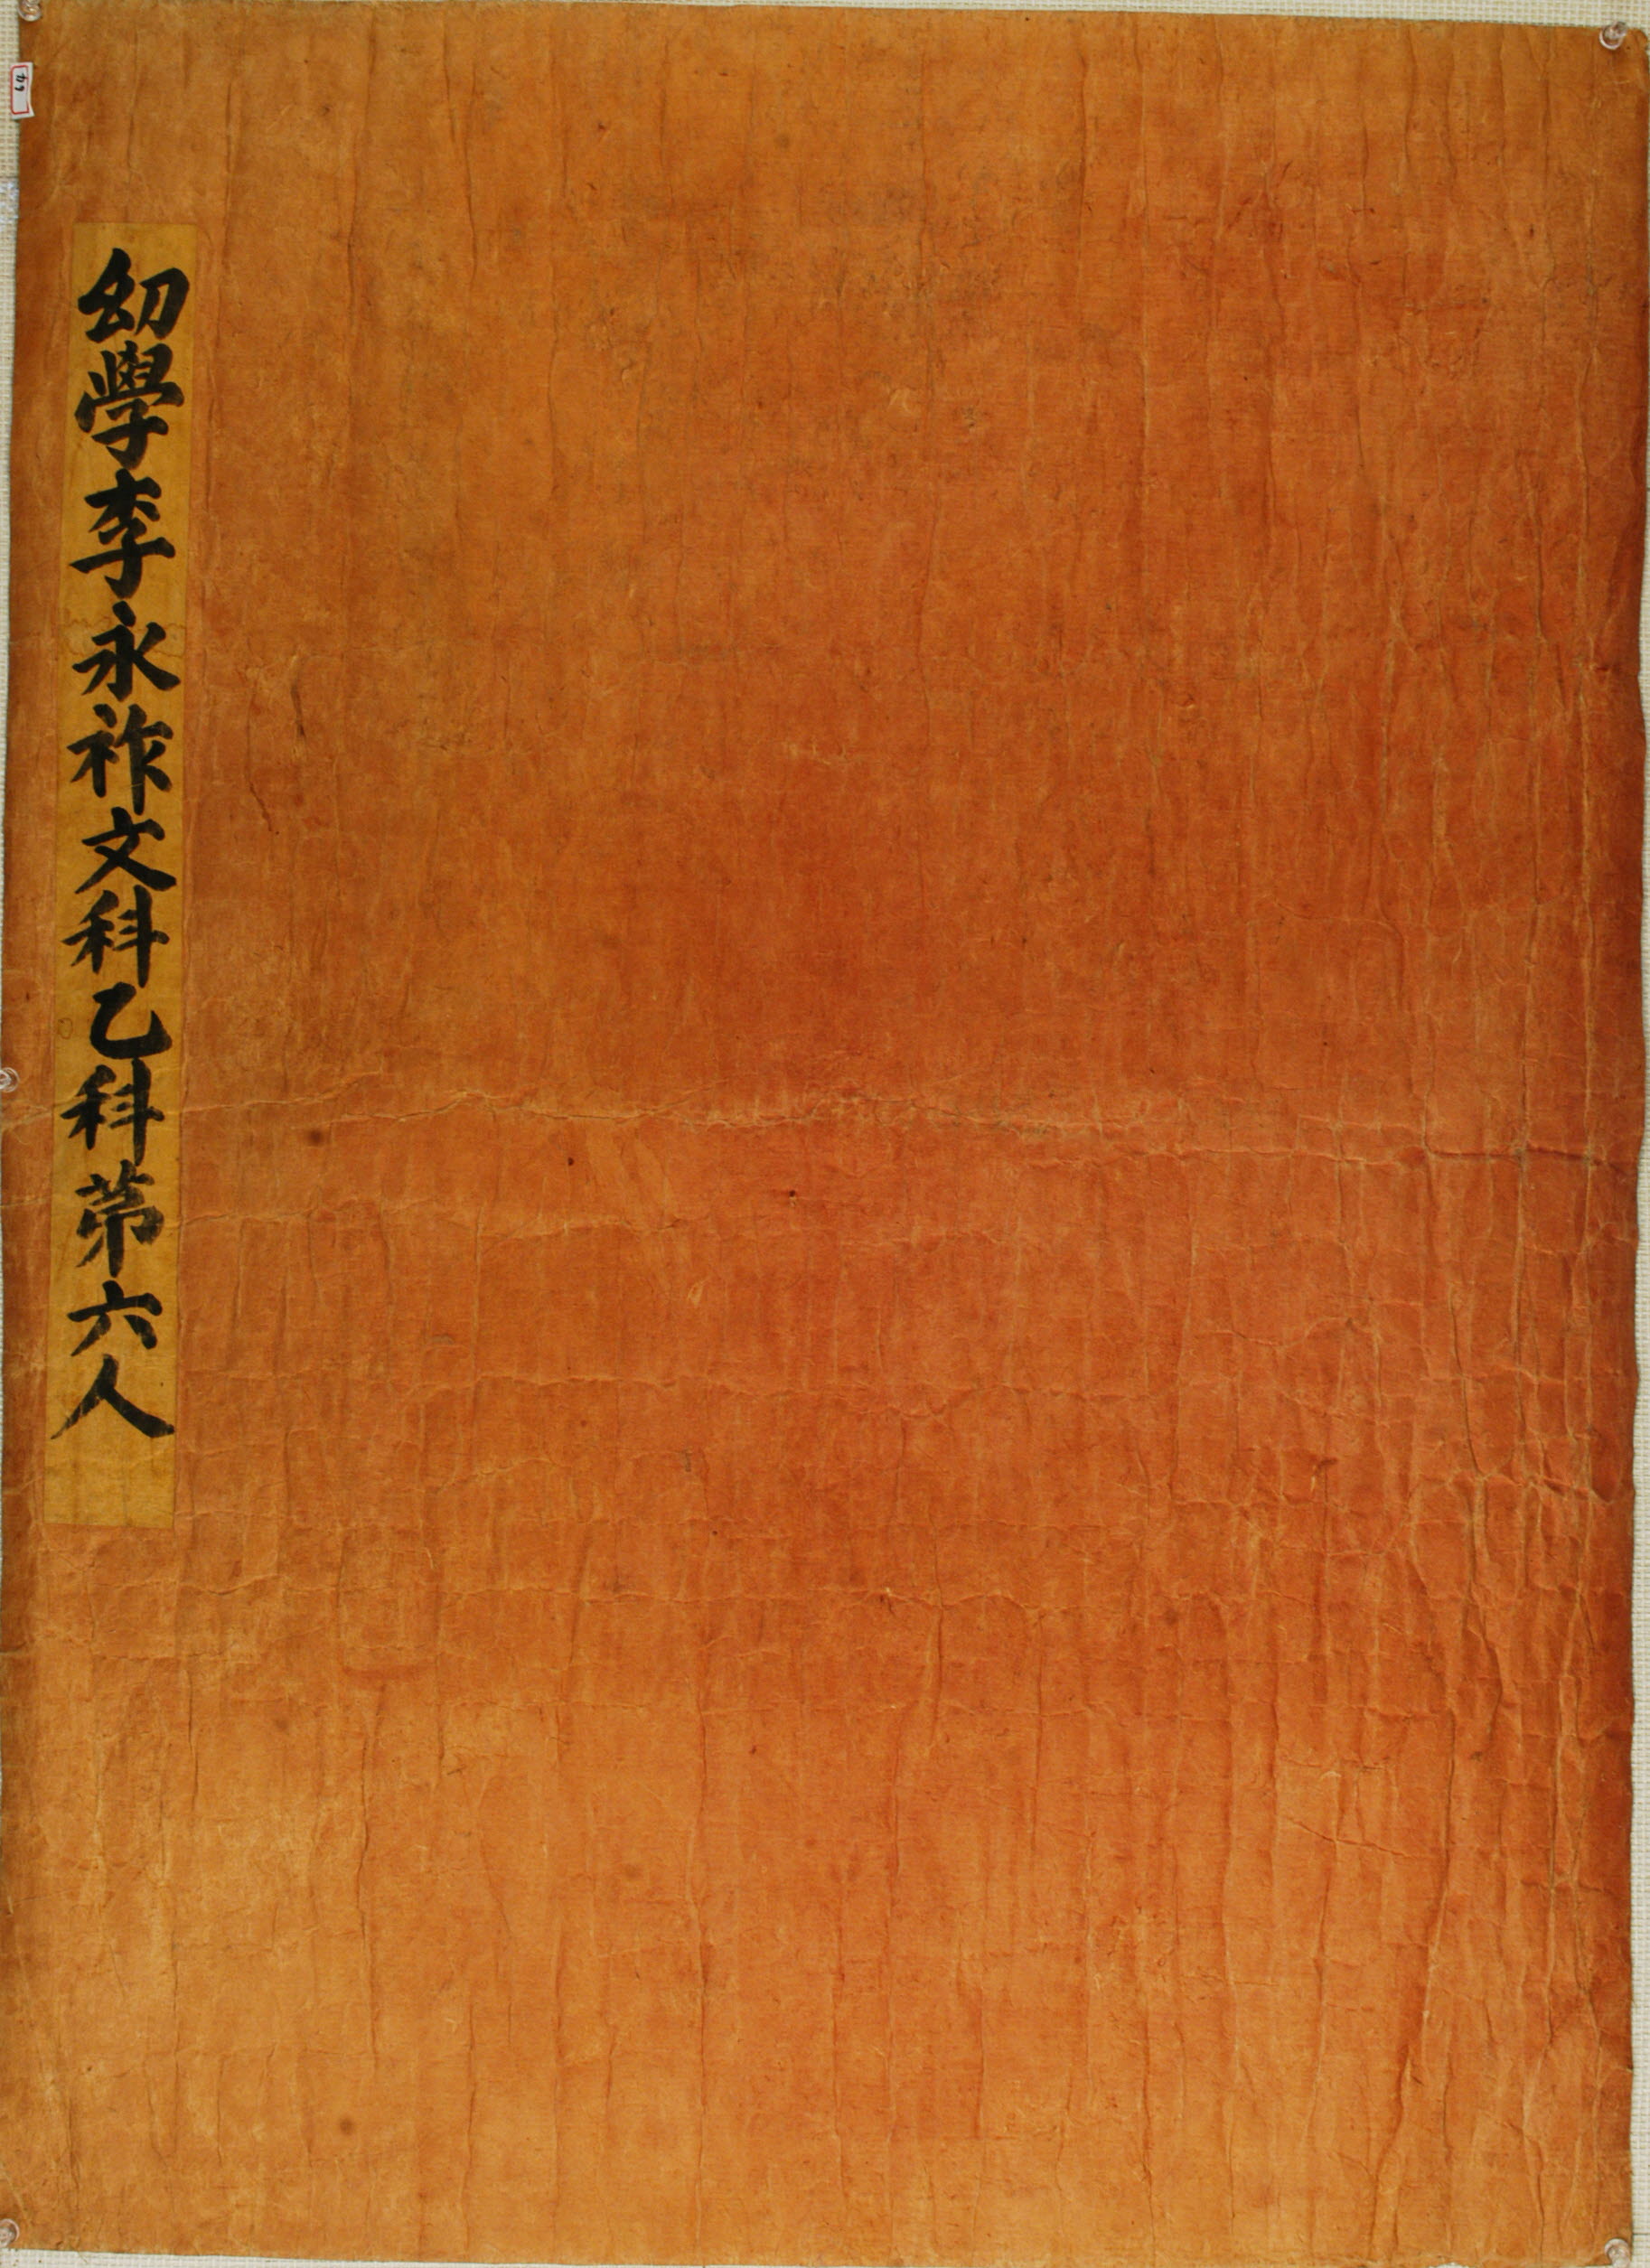 幼學李永祚文科乙科第六人